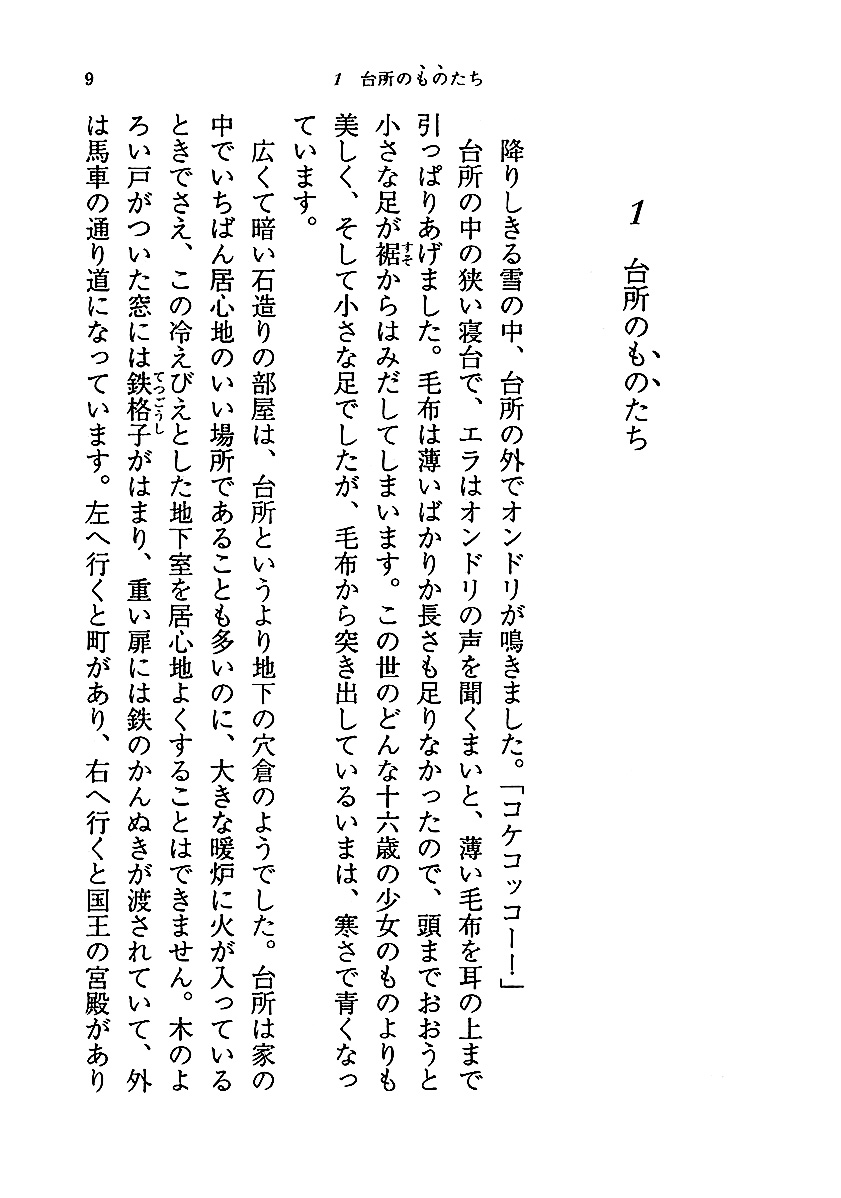 9
1 台所のものたち
1 台所のものたち
降りしきる雪の中、台所の外でオンドリが鳴きました。「コケコッコーー！」
台所の中の狭い寝台で、エラはオンドリの声を聞くまいと、薄い毛布を耳の上まで
引っぱりあげました。毛布は薄いばかりか長さも足りなかったので、頭までおおうと
小さな足が裾からはみだしてしまいます。この世のどんな十六歳の少女のものよりも
すそ
美しく、そして小さな足でしたが、毛布から突き出しているいまは、寒さで青くなっ
ています。
広くて暗い石造りの部屋は、台所というより地下の穴倉のようでした。台所は家の
中でいちばん居心地のいい場所であることも多いのに、大きな暖炉に火が入っている
ときでさえ、この冷えびえとした地下室を居心地よくすることはできません。木のよ
ろい戸がついた窓には鉄格子がはまり、重い扉には鉄のかんぬきが渡されていて、外
てつごうし
は馬車の通り道になっています。左へ行くと町があり、右へ行くと国王の宮殿があり